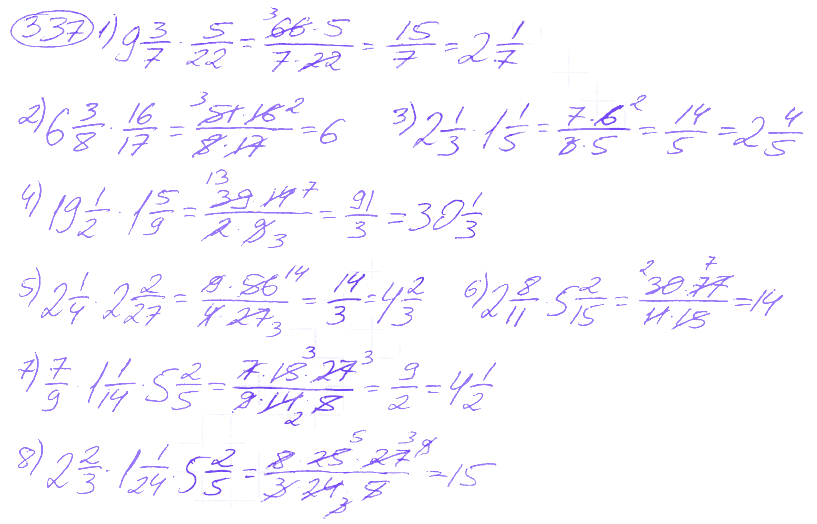 337 1) 9 3/7 · 5/22 = (66 · 5)/(7 · 22) 3 = 15/7 = 2 1/7
2) 6 3/8 · 16/17 = 3 (51 · 16)/(8 · 17) 2 = 6 3) 2 1/3 · 1 1/5 = (7 · 6)/(3 · 5) 2 = 14/5 = 2 4/5
4) 19 1/2 · 1 5/9 = 13 (39 · 14)/(2 · 9) 7 3 = 91/3 = 30 1/3
5) 2 1/4 · 2 2/27 = (9 · 56)/(4 · 27) 14 3 = 14/3 = 4 2/3 6) 2 8/11 · 5 2/15 = 2 (30 · 77)/(11 · 15) 7 = 14
7) 7/9 · 1 1/14 · 5 2/5 = (7 · 15 · 27)/(9 · 14 · 5) 3 3 2 = 9/2 = 4 1/2
8) 2 2/3 · 1 1/24 · 5 2/5 = (8 · 25 · 27)/(3 · 24 · 5) 5 3 9 3 = 15